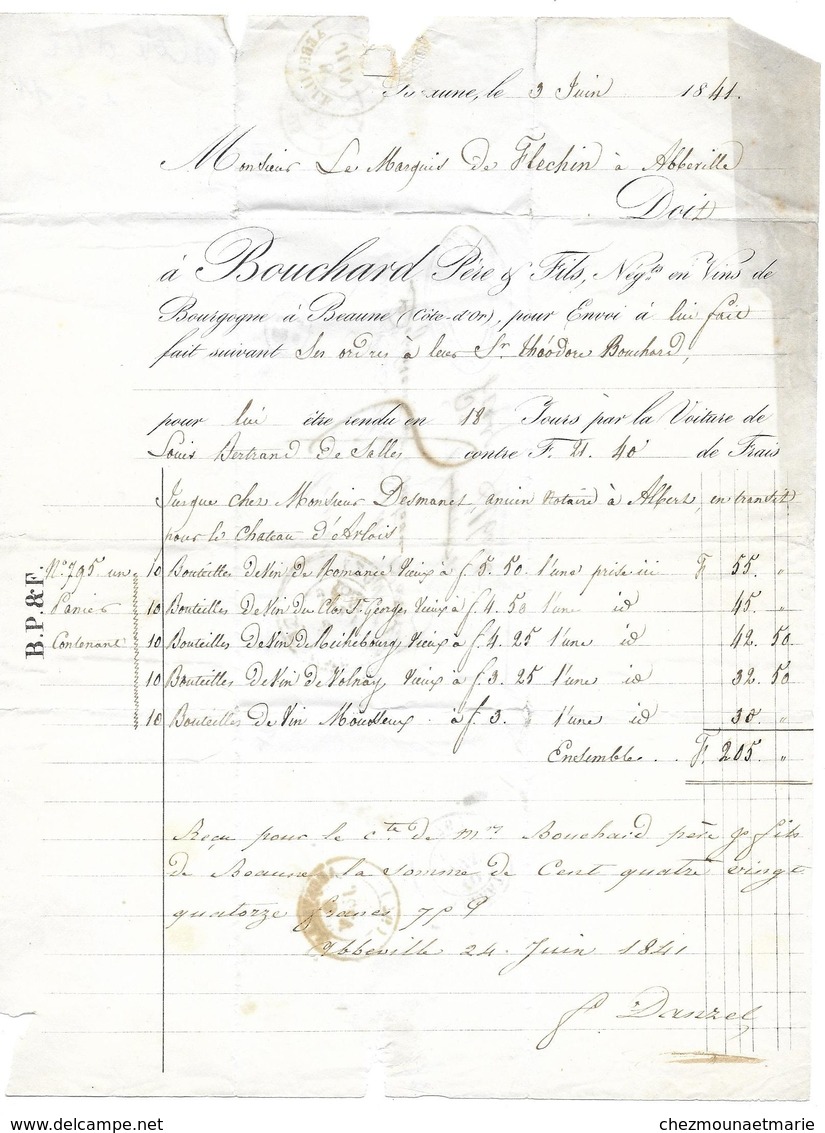 Beaune, le 3 Juin 1841.
Monsieur Le Marquis de Flechin à Abbeville
Doit
à Bouchard Père & Fils, Nég.ts en Vins de
Bourgogne à Beaune (Côte-d'Or), pour Envoi à lui fait
fait suivant Ses ordres à leur Sr. théodore Bouchard,
pour lui être rendu en 18 Jours par la Voiture de
Louis Bertrand de Salles contre F. 21. 40c de Frais
Jusque chez Monsieur Desmanet, ancien Notaire à Albert, en transit
pour le Chateau d'Arlois
B.P.&F. N.o 795 un 10 Bouteilles de Vin de Romanée Vieux à f. 5. 50 l'une prise ici F. 55. "
Panier 10 Bouteilles de Vin du Clos St. Georges Vieux à f. 4. 50 l'une id 45. "
Contenant 10 Bouteilles de Vin de Richebourg Vieux à f. 4. 25 l'une id 42. 50
10 Bouteilles de Vin de Volnay Vieux à f. 3. 25 l'une id 32. 50
10 Bouteilles de Vin Mousseux à f. 3. l'une id 30. "
Ensemble . . F. 205. "
Reçu pour le cte de mrs Bouchard père & fils
de Beaune la somme de Cent quatre vingt
quatorze francs 75 c
Abbeville 24 Juin 1841
Danzel
chezmounaetmarie
www.delcampe.net